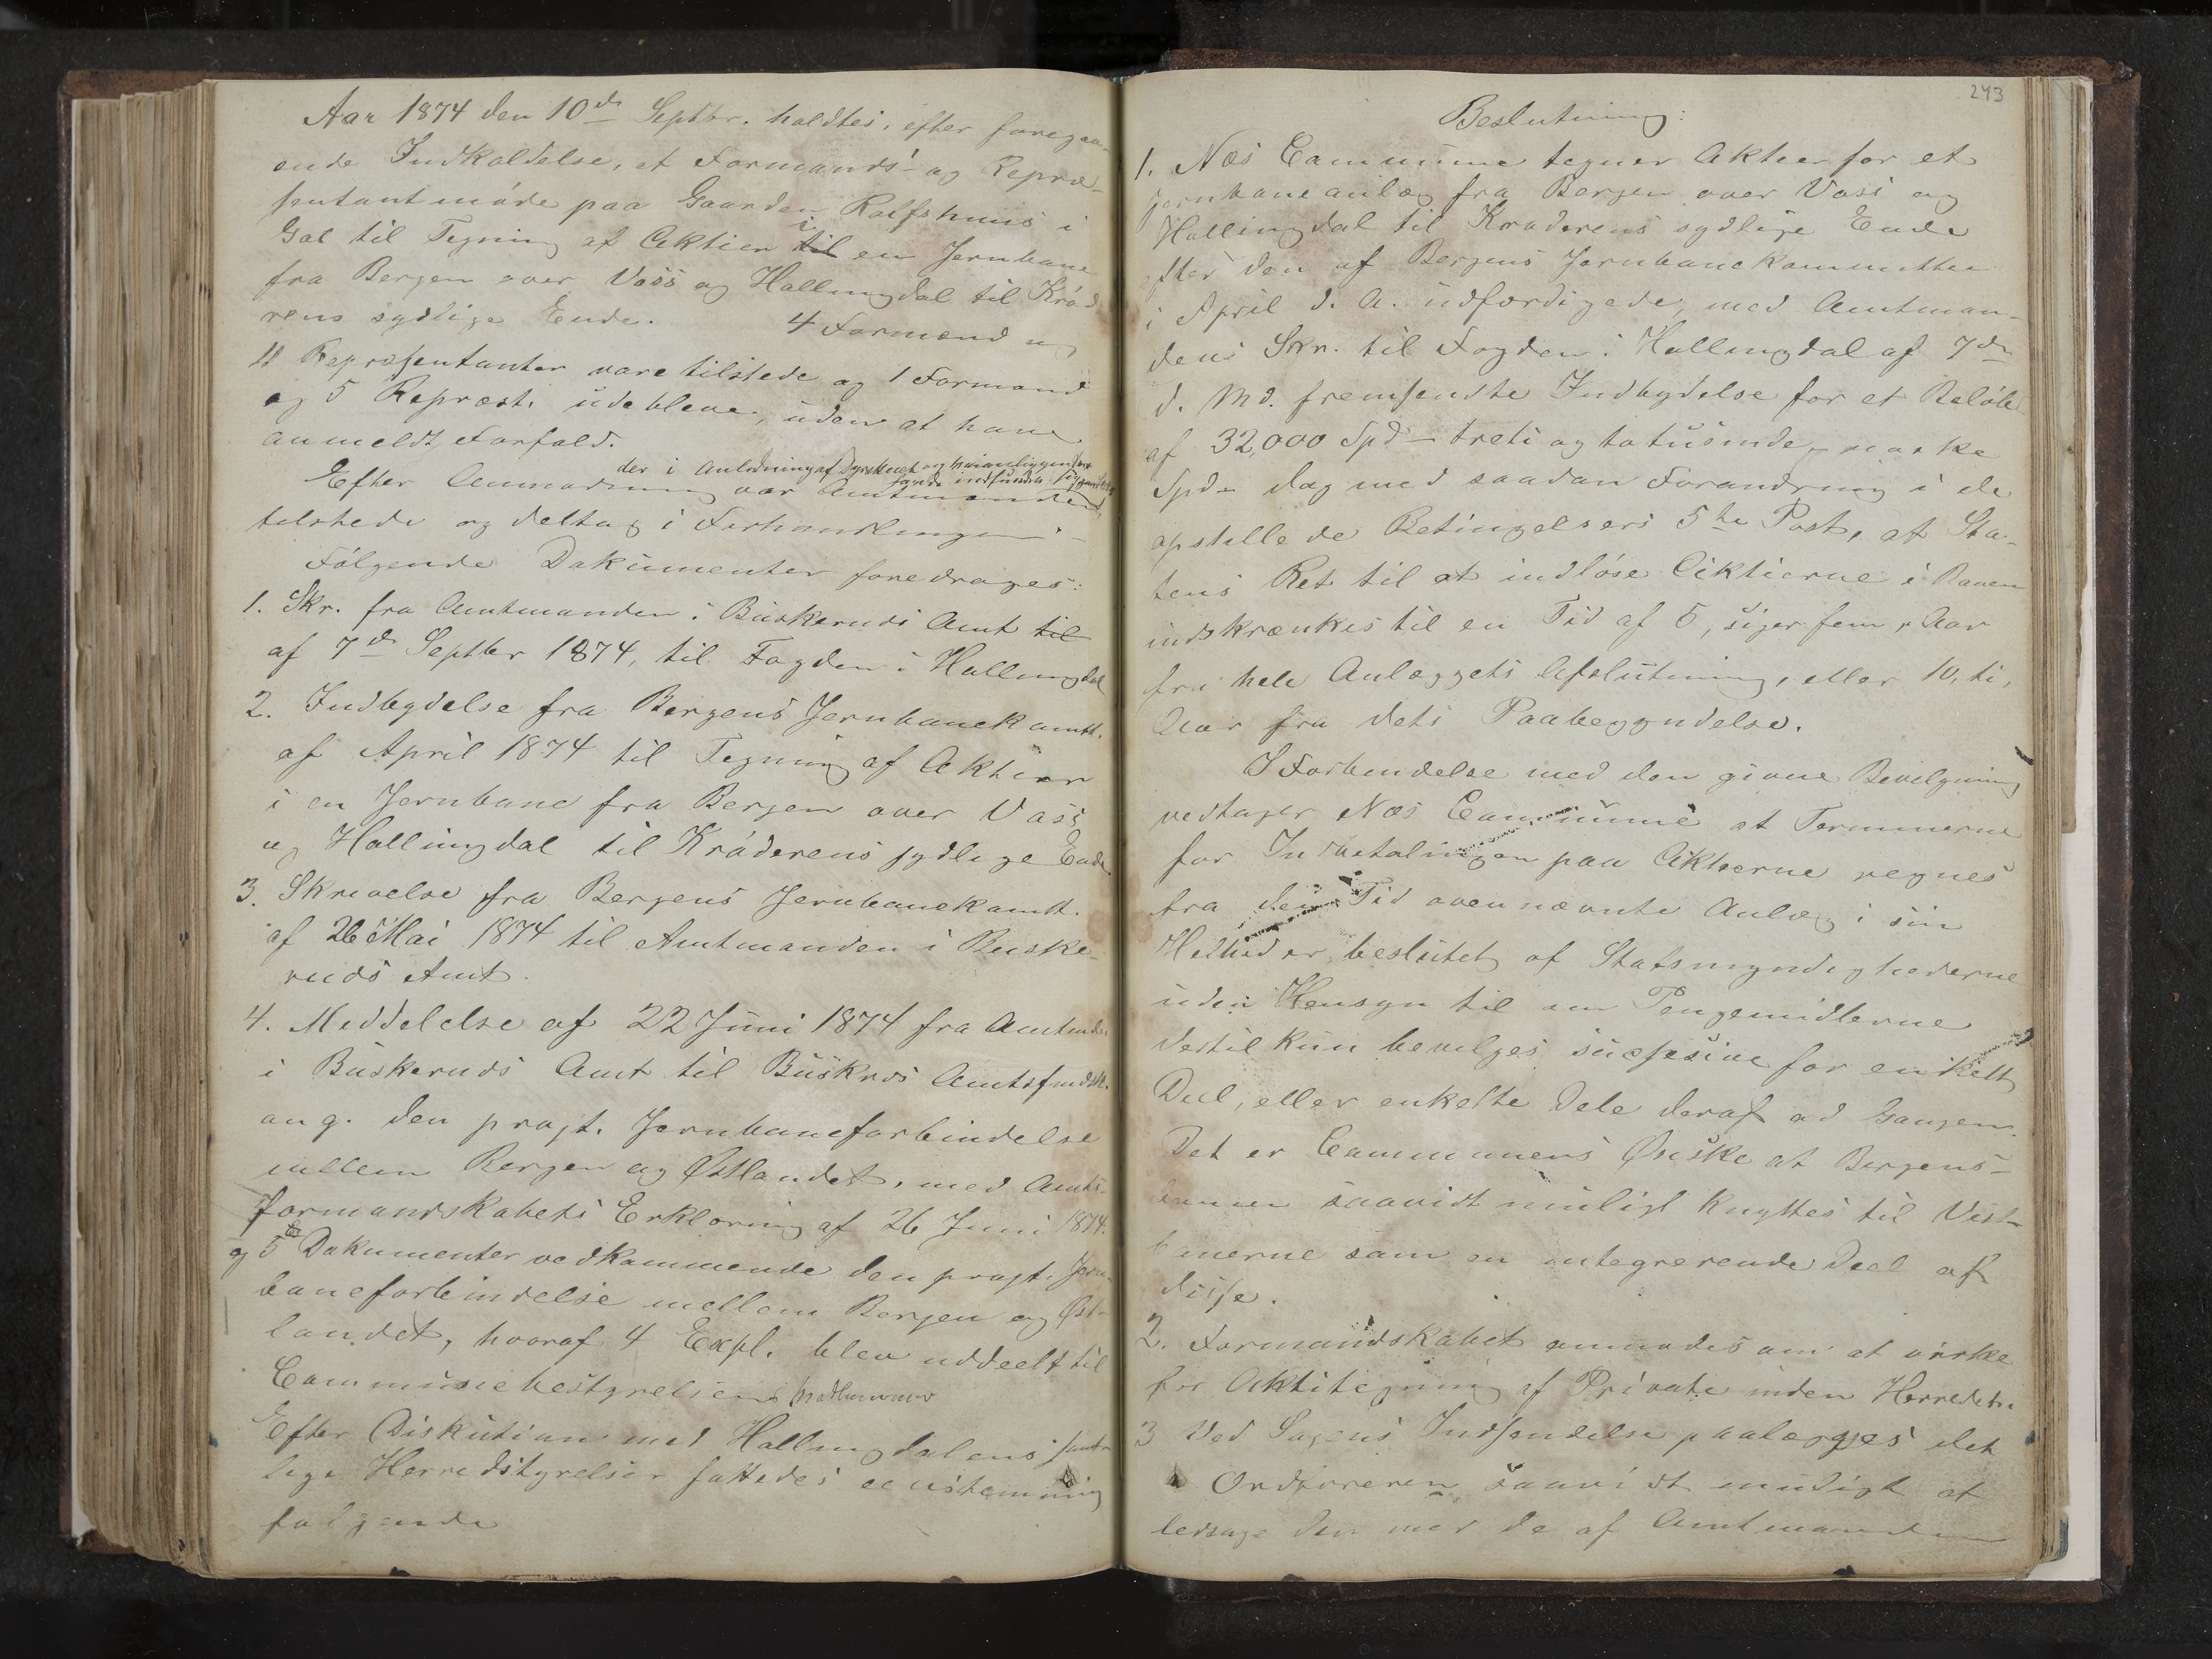 Aar 1874 den 10de Septbr. holdtes, efter foregaa-
ende Indkaldelse, et Formands- og Repræ-
sentantmøde paa Gaarden Rolfshuus i
Gol til Tegning af Aktier i en Jernbane
fra Bergen over Voss og Hallingdal til Krøde-
rens sydlige Ende. 4 Formænd og
11 Repræsentanter vare tilstede og 1 Formand
og 5 Repræst. udebleve, uden at have
anmeldt Forfald.
der i Anledning af
Efter Anmodning var Amtmanden,
tilstede og deltog i Forhandlingen.
Følgende Dokumenter foredroges:
1. Skr. fra Amtmanden i Buskeruds Amt til
af 7de Septbr 1874, til Fogden i Hallingdal
2. Indbydelse fra Bergens Jernbanekomt.
af April 1874 til Tegning af Aktier
i en Jernbane fra Bergen over Voss
og Hallingdal til Krøderens sydlige Ende
3. Skrivelse fra Bergens Jernbanekomt.
af 26 Mai 1874 til Amtmanden i Buske-
ruds Amt.
4. Meddelelse af 22 Juni 1874 fra Amtmden
i Buskeruds Amt til Buskrds Amtsfmdsk.
ang. den projt. Jernbaneforbindelse
mellem Bergen og Østlandet, med Amts-
formandskabets Erklæring af 26 Juni 1874.
og 5 Dokumenter vedkommende den projt. Jern-
baneforbindelse mellem Bergen og Øst-
landet, hvoraf 4 Expl. blev uddeelt til
Communebestyrelsens
Efter Diskution med Hallingdalens samt-
lige Herredstyrelser fattedes eenstemmig
følgende
243
Beslutning:
1. Næs Commune tegner Aktier for et
Jernbaneanlæg fra Bergen over Voss og
Hallingdal til Krøderens sydlige Ende
efter den af Bergens Jernbanekommittee
i April d. A. udfærdigede, med Amtman-
dens Skr. til Fogden i Hallingdal af 7de
d. Md. fremsendte Indbydelse for et Beløb
af 32,000 Spd - treti og totusinde norske
Spd - dog med saadan Forandring i de
opstillede Betingelsers 5te Post, at Sta-
tens Ret til at indløse Aktierne i Banen
indskrænkes til en Tid af 5, siger fem, Aar
fra hele Anlæggets Afslutning, eller 10, ti,
Aar fra dets Paabegyndelse.
I Forbindelse med den givne Bevilgning
vedtager Næs Commune at Terminerne
for Indbetalingen paa Aktierne regnes
fra den Tid ovennævnte Anlæg i sin
Helhed er besluttet af Statsmyndighederne
uden Hensyn til om Pengemidlerne
dertil kun bevilges sucsesive for enkelt
Deel, eller enkelte Dele deraf ad Gangen.
Det er Communens Ønske at Bergens-
banen saavidt muligt knyttes til Vest-
banerne som en integrerende Deel af
disse.
2. Formandskabet anmodes om at virke
for Aktitegning af Private inden Herredet.
3 Ved Sagens Indsendelse paalægges det
Ordføreren saavidt muligt at
ledsage den med de af Amtmanden